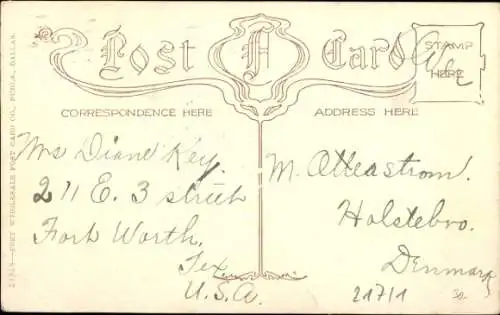 Post Card
STAMP
HERE
CORRESPONDENCE HERE
ADDRESS HERE
Mrs Diane Key.
211 E. 3 street
Fort Worth,
Tex
U.S.A.
M.
Holstebro.
Denmark
217/1
30.-
WHOLESALE POST CARD CO., PUBL'S., DALLAS.